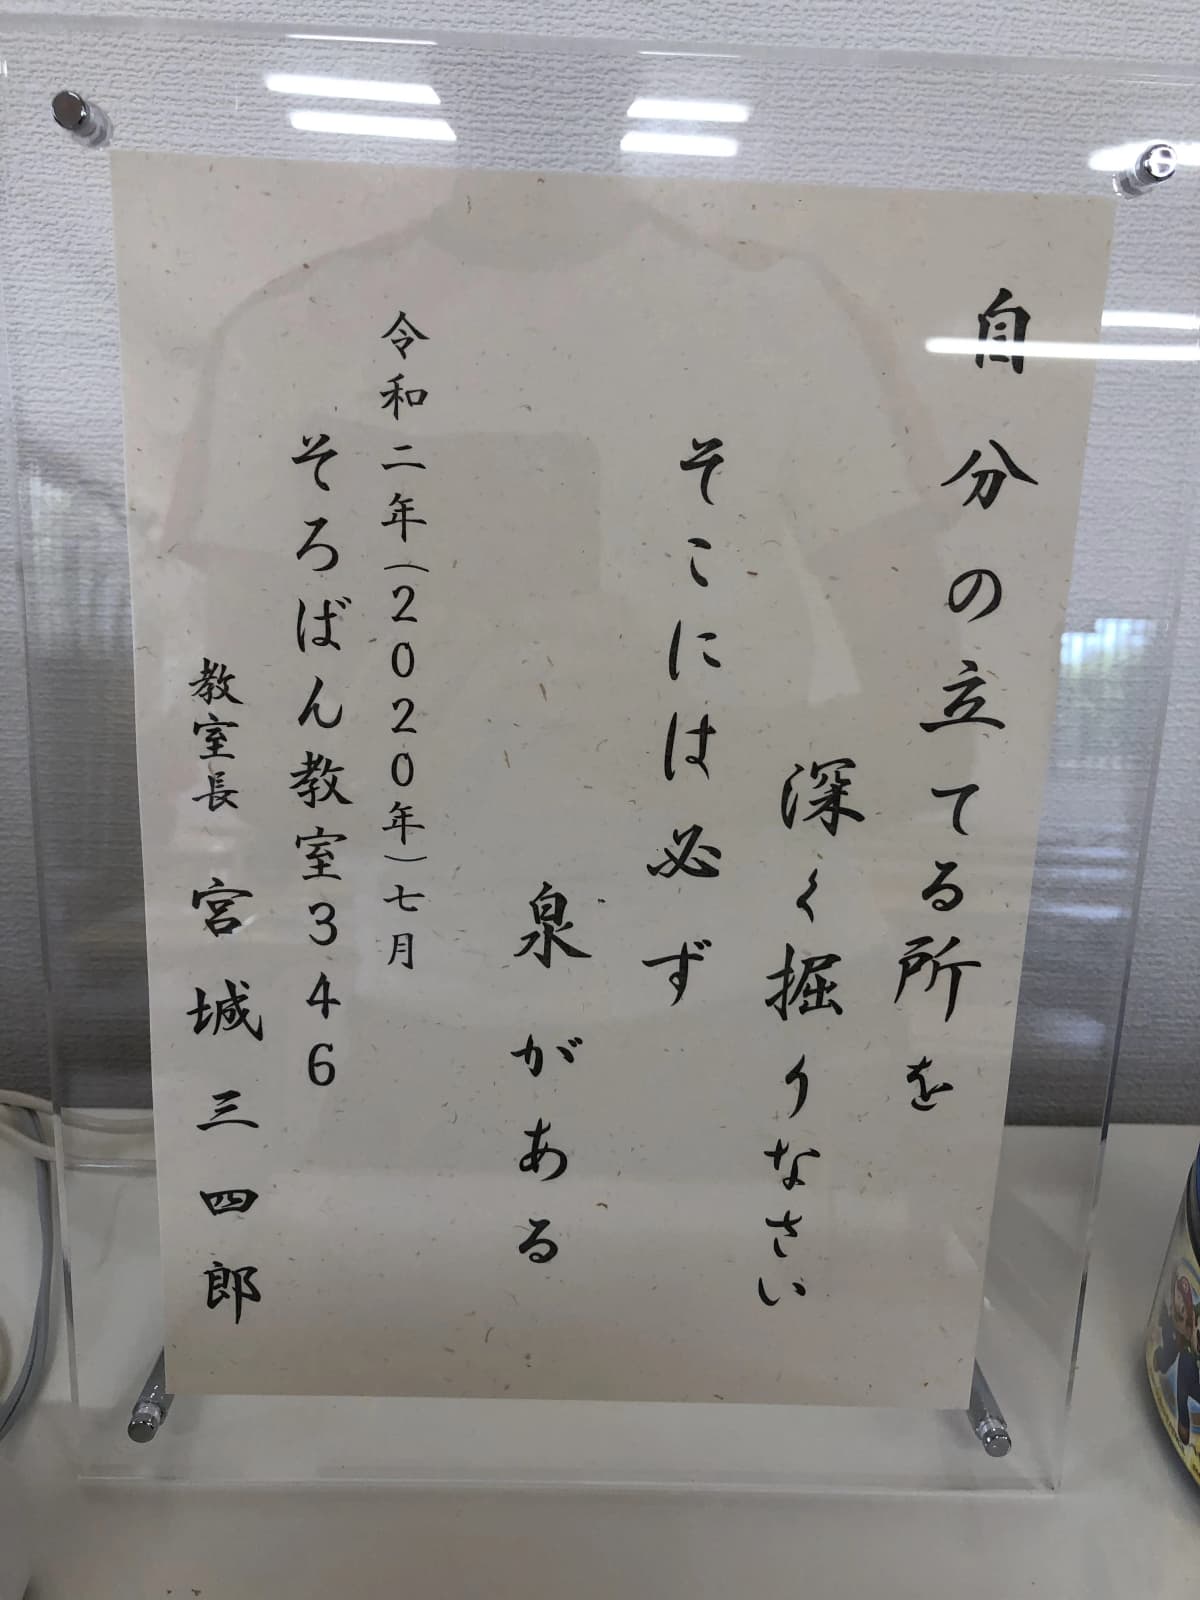 自分の立てる所を
深く掘りなさい
そこには必ず
泉がある
令和二年(2020年)七月
そろばん教室346
教室長 宮城三四郎